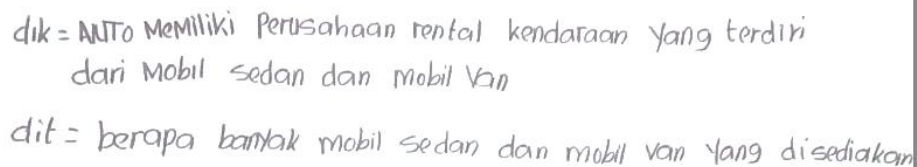 dik = ANTO MeMiliki Perusahaan rental kendaraan yang terdiri
dari Mobil sedan dan mobil Van
dit = berapa banyak mobil sedan dan mobil van yang disediakan